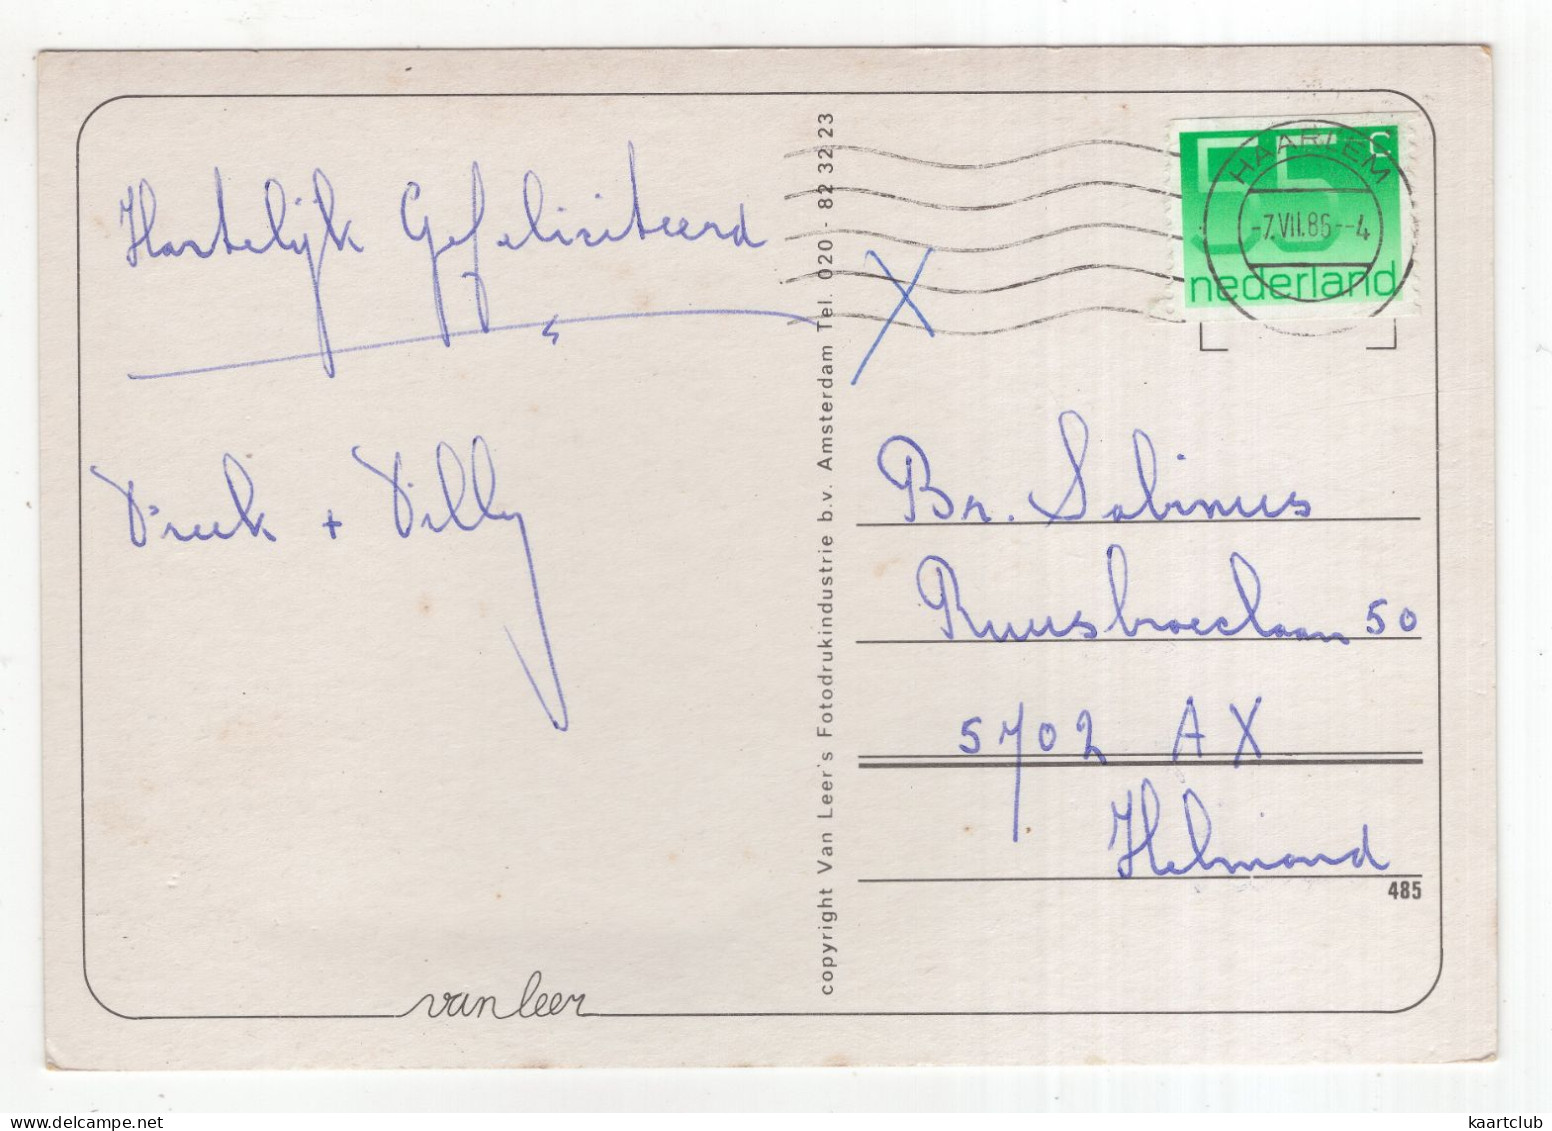 Hartelijk Gefeliciteerd
+ Willy
copyright Van Leer's Fotodrukindustrie b.v. Amsterdam Tel. 020 - 82 32 23
55 c
nederland
HAARLEM
-7.VII.86--4
X
Br. Sabinus
Ruusbroeclaan 50
5702 AX
Helmond
485
van leer
www.delcampe.net
kaartclub